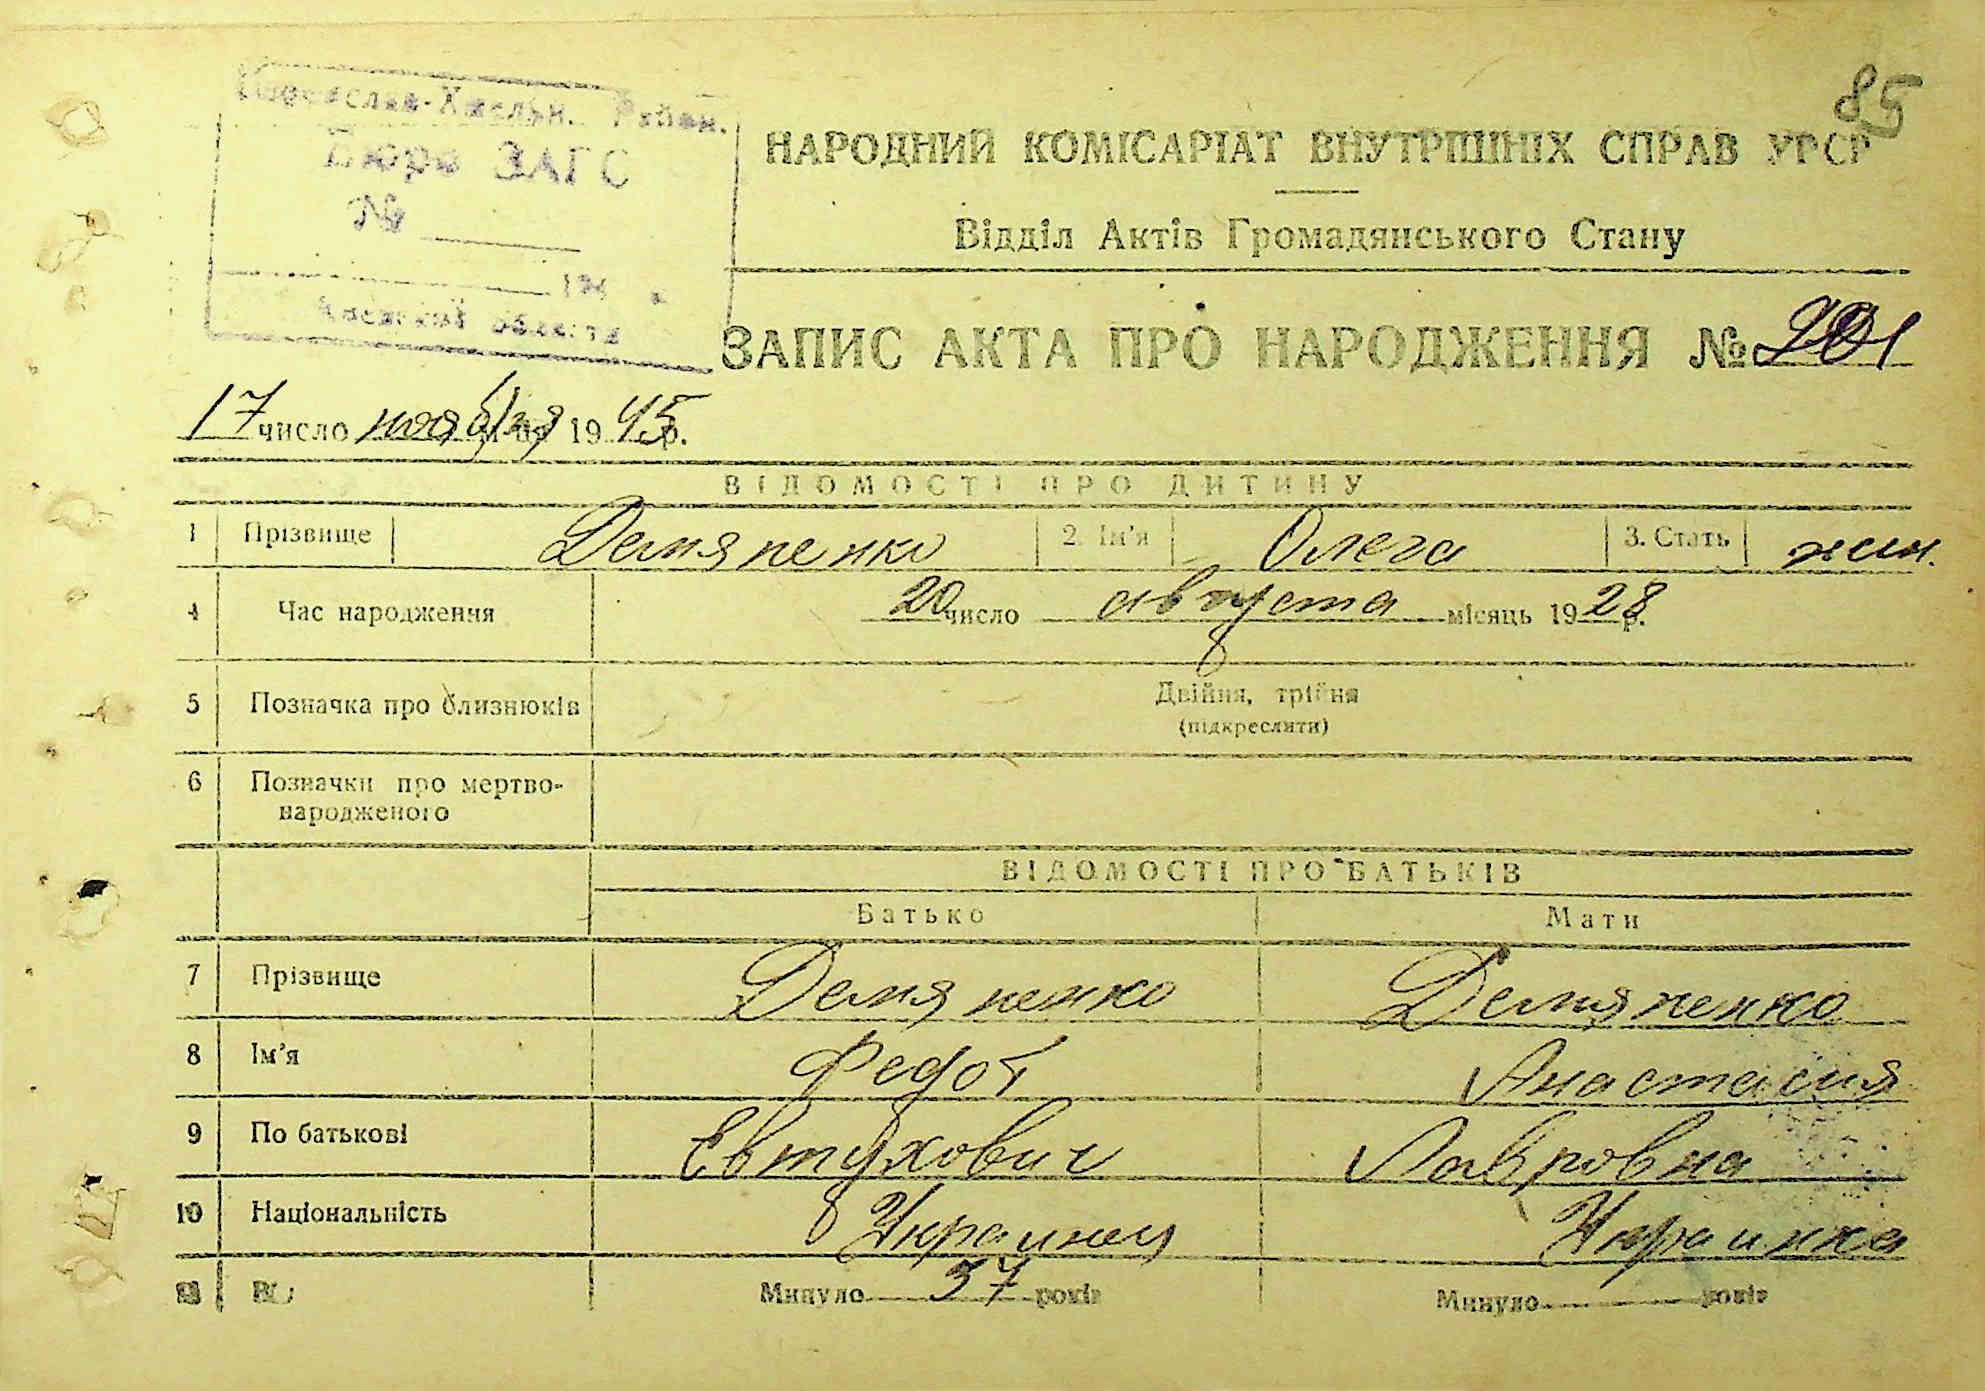 85
Переяслав-Хмельн. Район.
Бюро ЗАГС
№
194 р.
Киевской области
НАРОДНИЙ КОМІСАРІАТ ВНУТРІШНІХ СПРАВ УРСР
Відділ Актів Громадянського Стану
ЗАПИС АКТА ПРО НАРОДЖЕННЯ № 201
17 число ноября 1945 р.
ВІДОМОСТІ ПРО ДИТИНУ
1 Прізвище Демяненко 2. Ім'я Олега 3. Стать жен.
4 Час народження 20 число августа місяць 1928 р.
5 Позначка про близнюків Двійня, трійня
(підкреслити)
6 Позначки про мертво-
народженого
ВІДОМОСТІ ПРО БАТЬКІВ
Батько Мати
7 Прізвище Демяненко Демяненко
8 Ім'я Федот Анастасия
9 По батькові Евтухович Лавровна
10 Національність Украинец Украинка
Минуло 37 років Минуло років